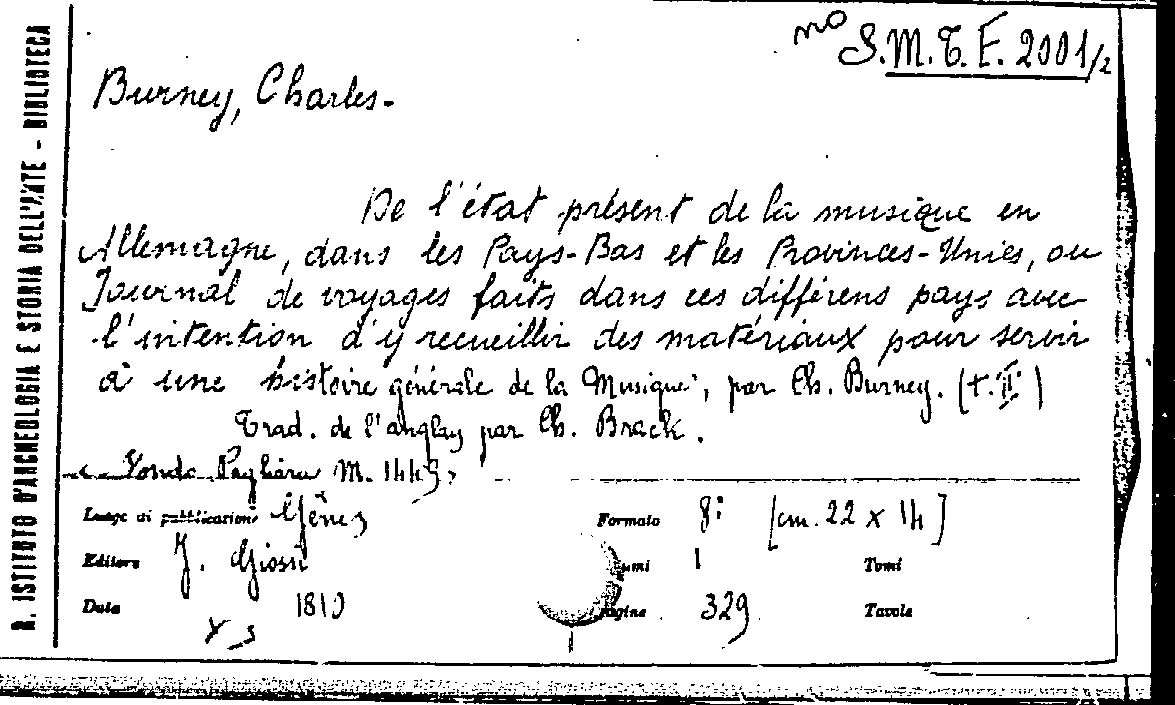 R. ISTITUTO D'ARCHEOLOGIA E STORIA DELL'ARTE - BIBLIOTECA
mo S.M.T.E. 2001/2
Burney, Charles.
De l'état présent de la musique en
Allemagne, dans les Pays-Bas et les Provinces-Unies, ou
Journal de voyages faits dans ces différens pays avec
l'intention d'y recueillir des matériaux pour servir
à une histoire générale de la Musique, par Ch. Burney. (t. II)
Trad. de l'anglais par Ch. Brack.
Fondo Pagliara M. 1443
Luogo di pubblicazione Gênes
Formato 8° [cm. 22 x 14]
Editore J. Giossi
umi 1 Tomi
Data 1810
Pagine 329 Tavole